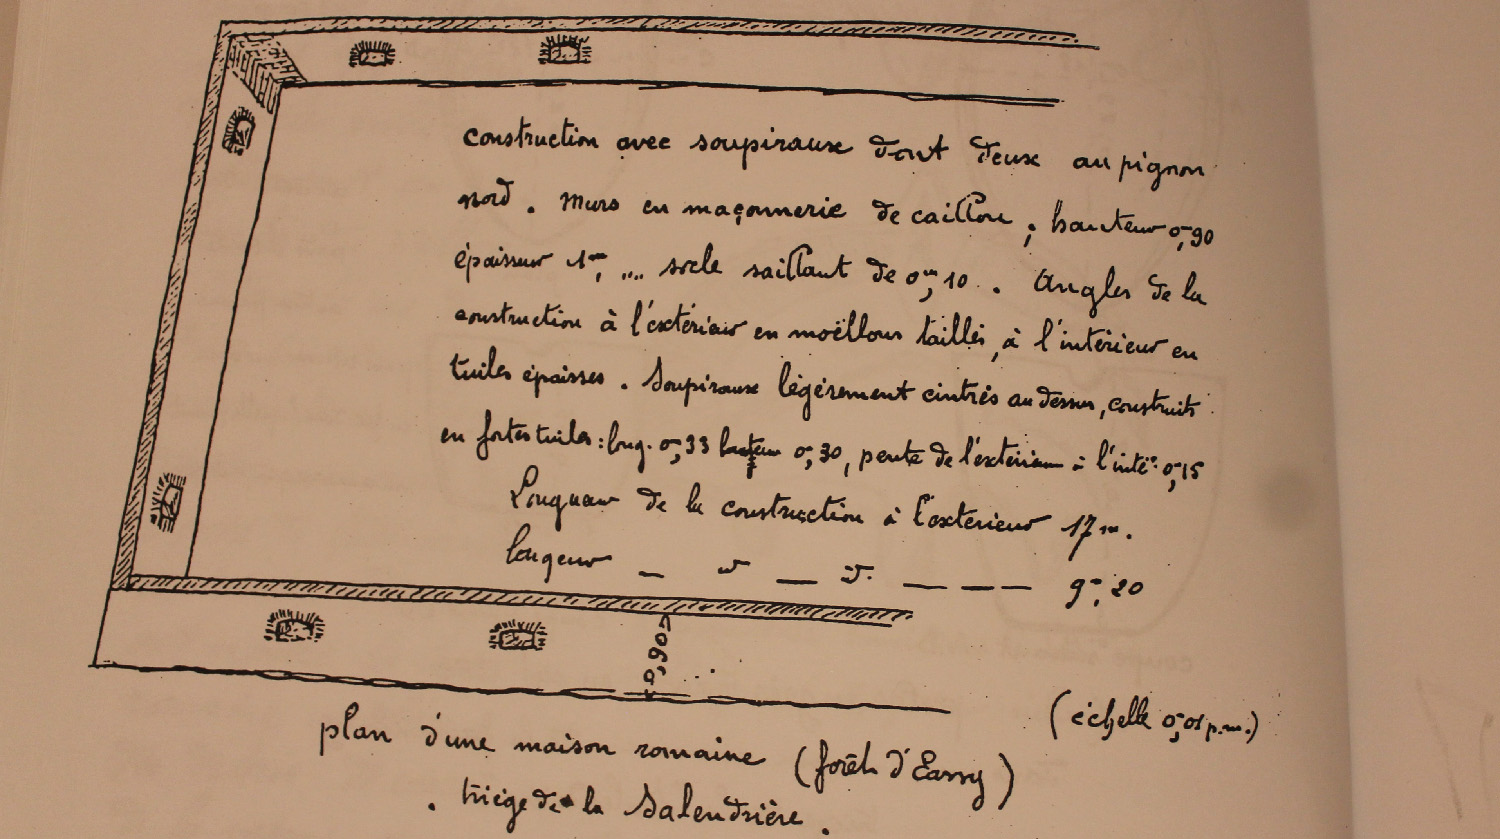 construction avec soupiraux dont deux au pignon
nord. Murs en maçonnerie de caillou; hauteur 0m,90
épaisseur 1m, ,,,, socle saillant de 0m,10. Angles de la
construction à l'extérieur en moëllons taillés, à l'intérieur en
tuiles épaisses. Soupiraux légèrement cintrés au dessus, construits
en fortes tuiles: long. 0m,33 hauteur 0m,30, pente de l'extérieur à l'inté.r 0m,15
Longueur de la construction à l'extérieur 17m.
largeur — d° — d°. — — — 9m,20
0,90
(échelle 0m,01 p.m.)
plan d'une maison romaine (forêt d'Eawy)
. triège de la Salendrière.